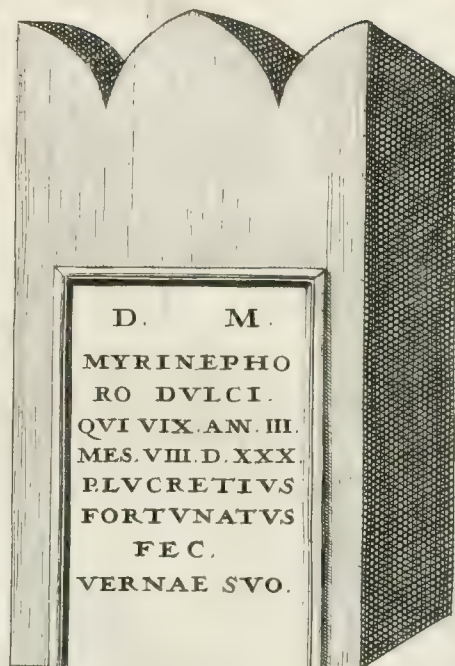 D. M.
MYRINEPHO
RO DVLCI.
QVI VIX. ANN. III.
MES. VIII. D. XXX
P. LVCRETIVS
FORTVNATVS
FEC.
VERNAE SVO.